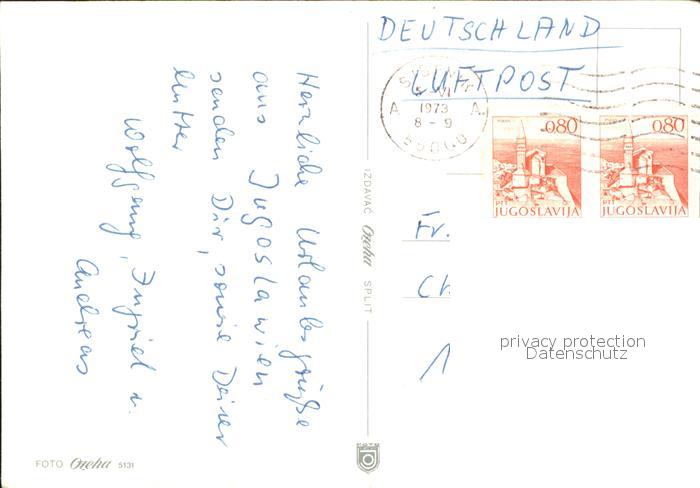 DEUTSCHLAND
LUFTPOST
A
VI
1973
8 - 9
A
0.80
PTT
JUGOSLAVIJA
0.80
PTT
JUGOSLAVIJA
Herzliche Urlaubsgrüße
aus Jugoslawien
senden Dir, sowie Deiner
Mutter
Wolfgang, Ingrid u.
Andreas
IZDAVAČ Oreha SPLIT
Fr.
Ch
1
privacy protection
Datenschutz
FOTO Oreha 5131
FOTO